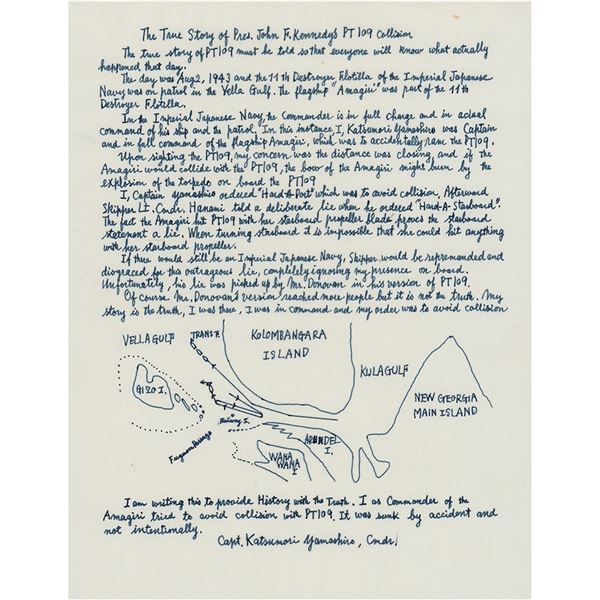 The True Story of Pres. John F. Kennedy's PT 109 Collision
The true story of PT109 must be told so that everyone will know what actually
happened that day.
The day was Aug 2, 1943 and the 11th Destroyer Flotilla of the Imperial Japanese
Navy was on patrol in the Vella Gulf. The flagship "Amagiri" was part of the 11th
Destroyer Flotilla.
In the Imperial Japanese Navy, the Commander is in full charge and in actual
command of his ship and the patrol. In this instance I, Katsumori Yamashiro was Captain
and in full command of the flagship Amagiri, which was to accidentally ram the PT109.
Upon sighting the PT109, my concern was the distance was closing, and if the
Amagiri would collide with the PT109, the bow of the Amagiri might burn by the
explosion of the torpedo on board the PT109
I, Captain Yamashiro ordered "Hard-A-Port" which was to avoid collision. Afterward
Skipper Lt. Cmdr. Hanami told a deliberate lie when he ordered "Hard-A-Starboard".
The fact the Amagiri hit PT109 with her starboard propeller blade proves the starboard
statement a lie. When turning starboard it is impossible that she could hit anything
with her starboard propeller.
If there would still be an Imperial Japanese Navy, Skipper would be reprimanded and
disgraced for this outrageous lie, completely ignoring my presence on board.
Unfortunately, his lie was picked up by Mr. Donovan in his version of PT109.
Of course Mr. Donovan's version reached more people but it is not the truth. My
story is the truth, I was there, I was in command and my order was to avoid collision
VELLA GULF
KOLOMBANGARA
ISLAND
KULA GULF
GIZO I.
NEW GEORGIA
MAIN ISLAND
Ferguson Passage
ARUNDEL
I.
WANA
WANA
I
I am writing this to provide History with the Truth. I as Commander of the
Amagiri tried to avoid collision with PT109. It was sunk by accident and
not intentionally.
Capt. Katsumori Yamashiro, Cmdr.